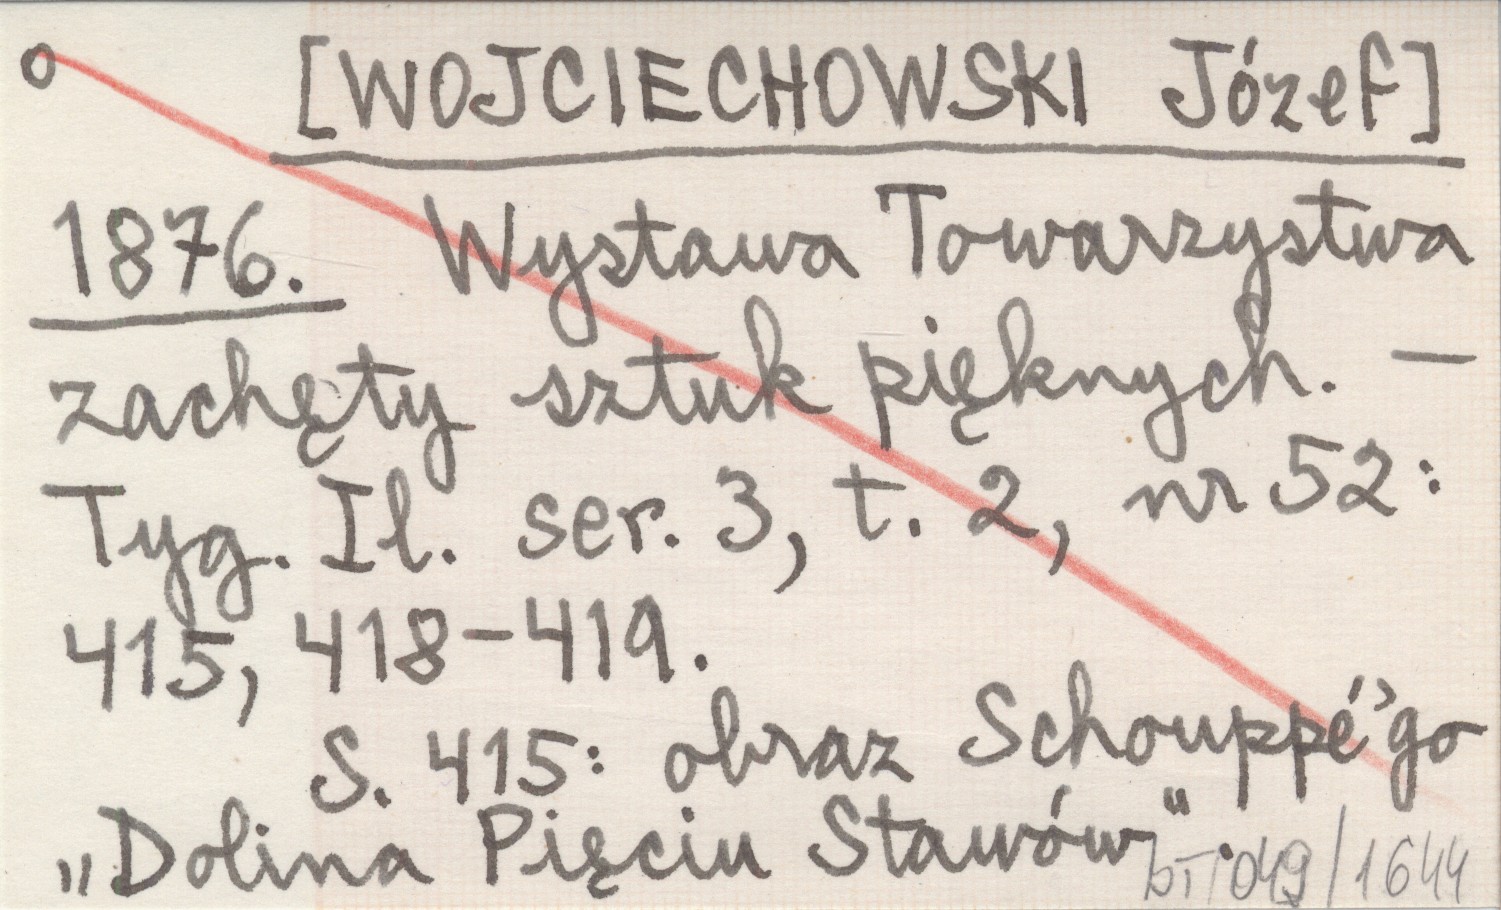 o [WOJCIECHOWSKI Józef]
1876. Wystawa Towarzystwa
zachęty sztuk pięknych. —
Tyg. Il. ser. 3, t. 2, nr 52:
415, 418-419.
S. 415: obraz Schouppé'go
„Dolina Pięciu Stawów".
bT/049/1644